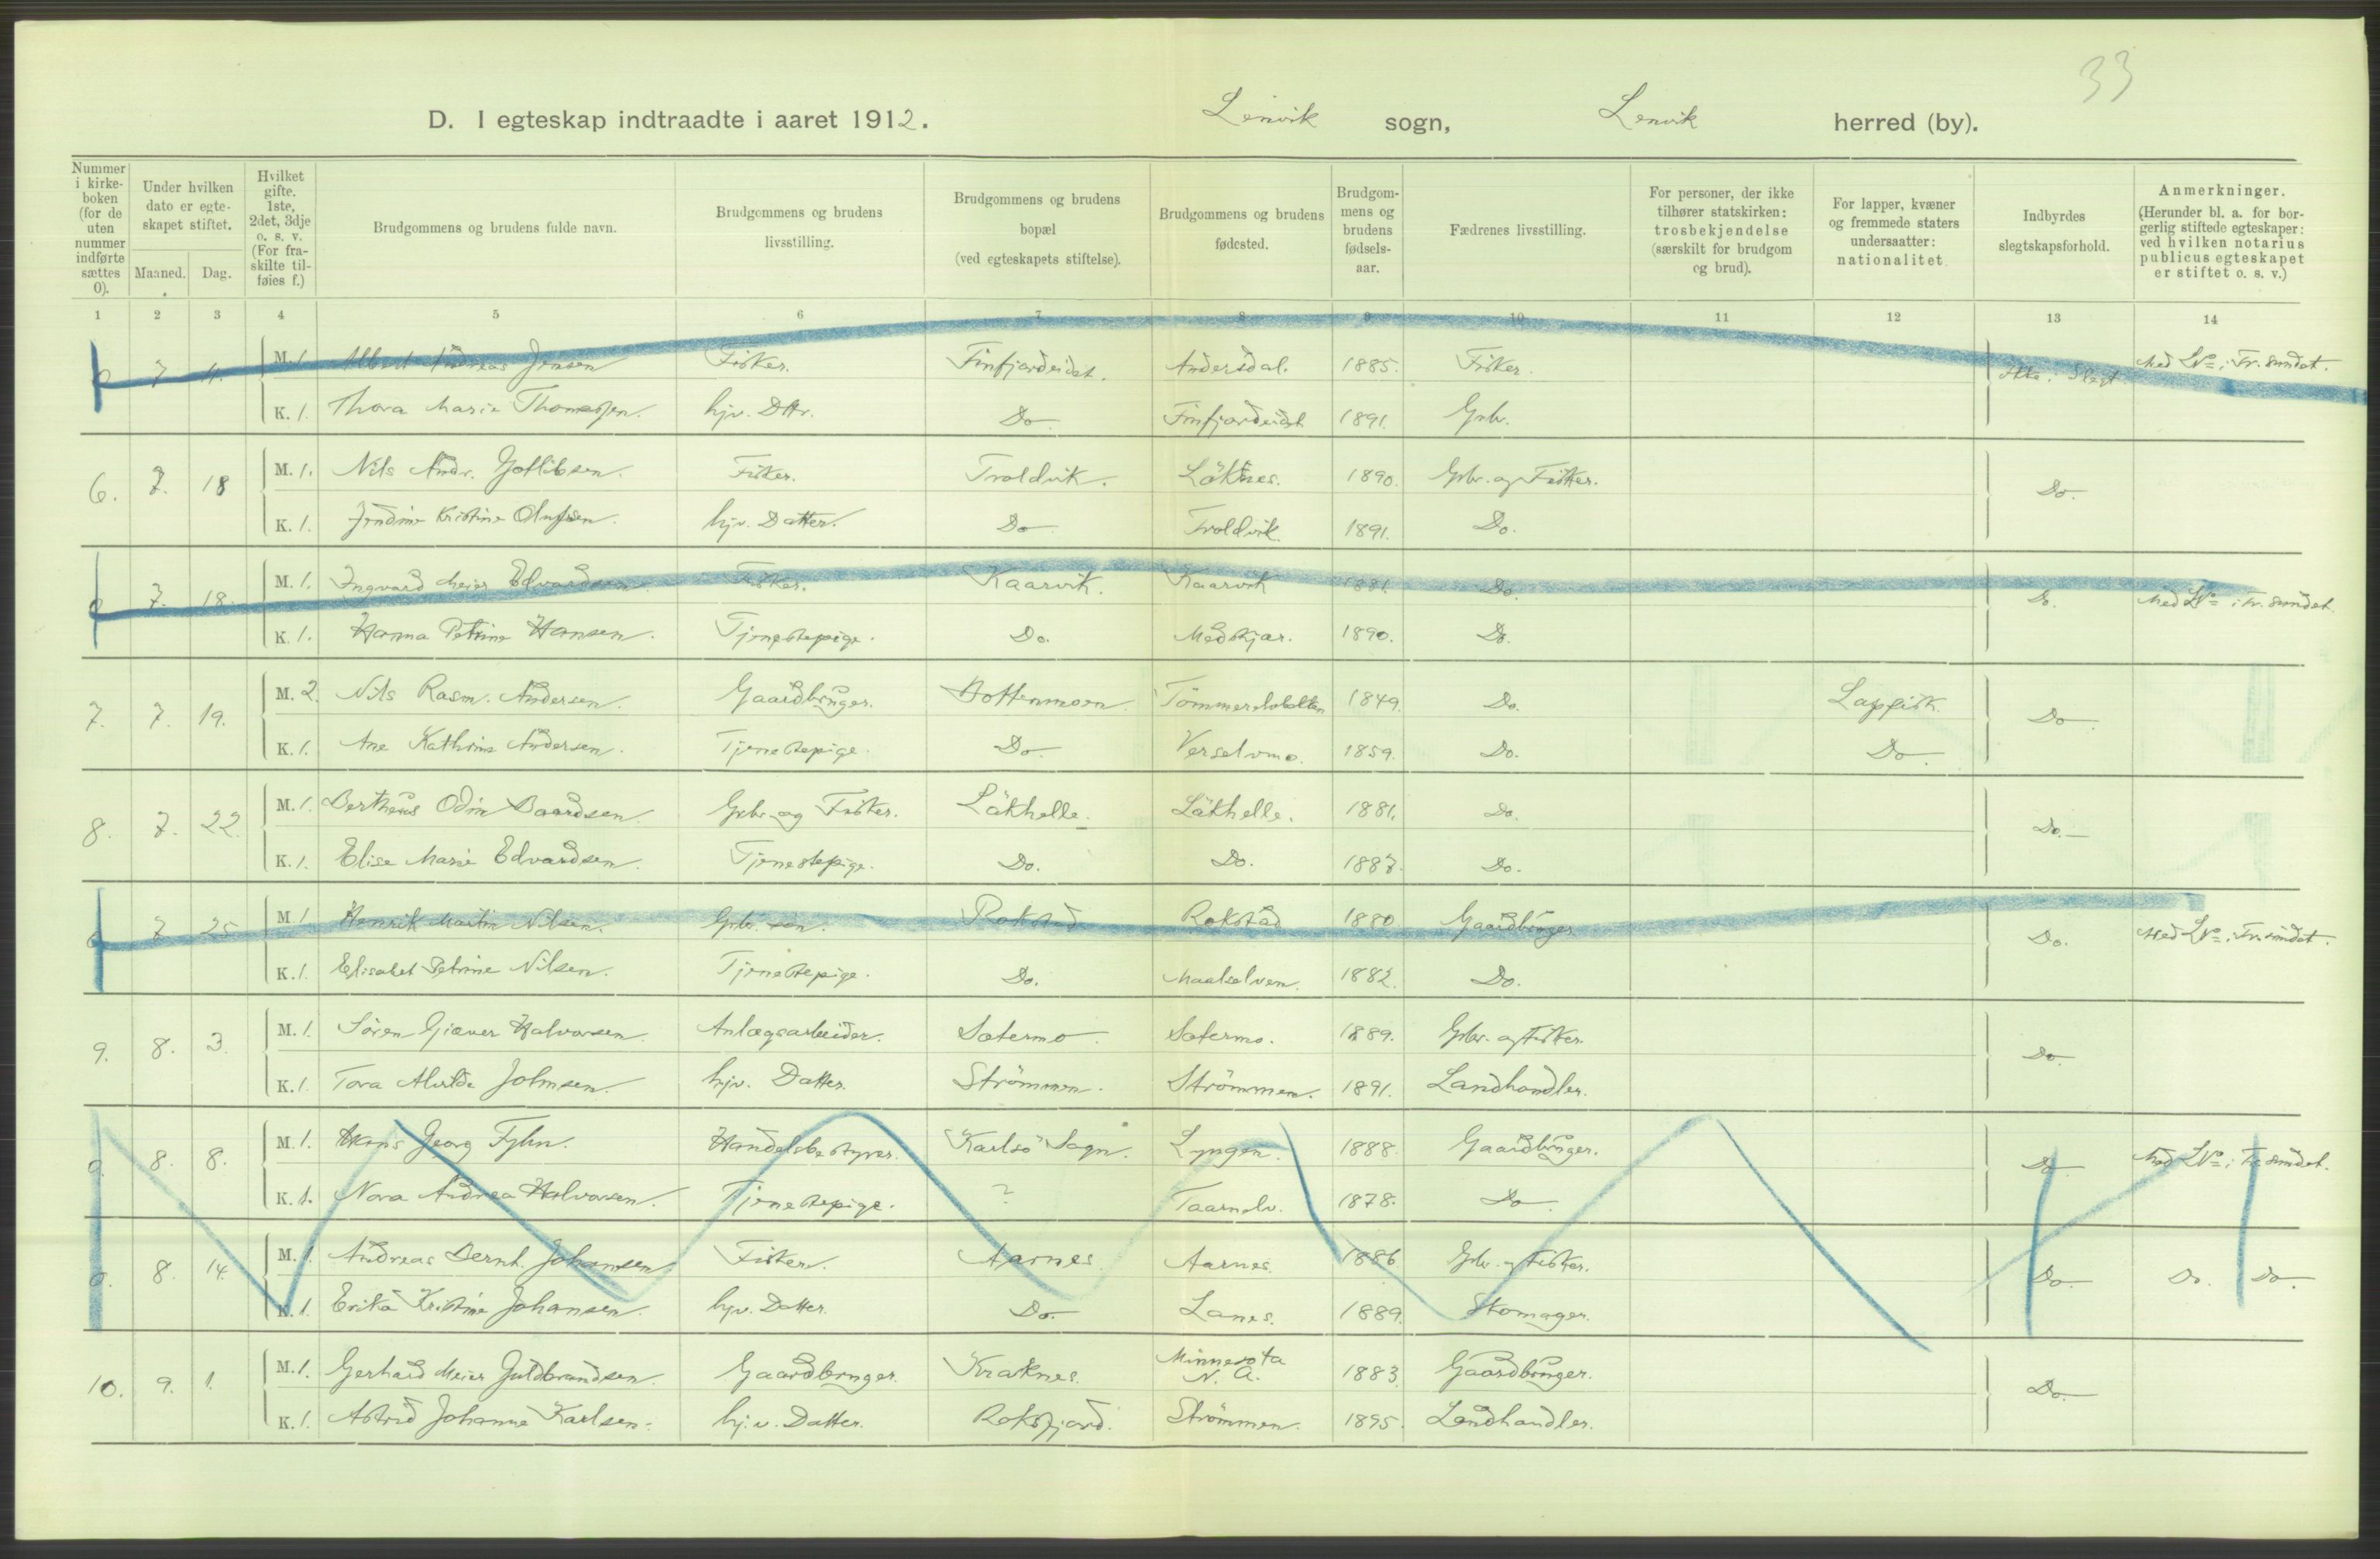 33
D. I egteskap indtraadte i aaret 1912. Lenvik sogn, Lenvik herred (by).
Nummer i kirke- boken (for de uten nummer indførte sættes 0). | Under hvilken dato er egte- skapet stiftet. Maaned. Dag. | Hvilket gifte. 1ste, 2det, 3dje o. s. v. (For fra- skilte til- føies f.) | Brudgommens og brudens fulde navn. | Brudgommens og brudens livsstilling. | Brudgommens og brudens bopæl (ved egteskapets stiftelse). | Brudgommens og brudens fødested. | Brudgom- mens og brudens fødsels- aar. | Fædrenes livsstilling. | For personer, der ikke tilhører statskirken: trosbekjendelse (særskilt for brudgom og brud). | For lapper, kvæner og fremmede staters undersaatter: nationalitet. | Indbyrdes slegtskapsforhold. | Anmerkninger. (Herunder bl. a. for bor- gerlig stiftede egteskaper: ved hvilken notarius publicus egteskapet er stiftet o. s. v.)
1 2 3 4 5 6 7 8 9 10 11 12 13 14
0 7 11. M. 1. Albert Andreas Jensen Fisker. Finfjordeidet. Andersdal. 1885. Fisker. Ikke i Slegt Med No i Fr. sundet.
K. 1. Thora Marie Thomassen. hjv. Dttr. Do Finfjordeidet 1891. Grbr.
6. 7. 18 M. 1. Nils Andr. Gotlibsen. Fisker. Troldvik. Läknes. 1890. Grbr. og Fisker. Do.
K. 1. Jendine Kristine Olufsen. hjv. Datter. Do Troldvik. 1891. Do.
0 7. 18. M. 1. Ingvard Meier Edvardsen. Fisker. Kaarvik. Kaarvik 1881. Do. Do. Med No i Fr. sundet.
K. 1. Hanna Petrine Hansen. Tjenestepige. Do. Medskjær. 1890. Do.
7. 7. 19. M. 2. Nils Rasm. Andersen. Gaardbruger. Bottenmoen. 1849. Do. Lappisk. Do
K. 1. Ane Kathrine Andersen. Tjenestepige. Do 1859. Do. Do
8. 7. 22. M. 1. Bertheus Odin Baardsen. Grbr. og Fisker. Läkhelle. Läkhelle. 1881. Do. Do.
K. 1. Elise Marie Edvardsen. Tjenestepige. Do. Do. 1887. Do.
0 7 25 M. 1. Henrik Martin Nilsen. Grbr. søn. Rokstad Rokstad 1880 Gaardbruger Do. Med No i Fr. sundet.
K. 1. Elisabet Petrine Nilsen. Tjenestepige. Do. Maalselven. 1882. Do.
9. 8. 3. M. 1. Sören Giæver Halvorsen. Anlægsarbeider. Sætermo. Sætermo. 1889. Grbr. og Fisker. Do.
K. 1. Tora Alvilde Johnsen. hjv. Datter. Strömmen. Strömmen. 1891. Landhandler.
0. 8. 8. M. 1. Hans Georg Fyhn. Handelsbestyrer. Karlsö Sogn. Lyngen. 1888. Gaardbruger. Do Med No i Fr. sundet.
K. 1. Nora Andrea Halvorsen. Tjenestepige. ? Taarnelv. 1878. Do
0. 8. 14. M. 1. Andreas Bernh. Johansen Fisker. Aarnes. Aarnes. 1886 Grbr. og Fisker. Do. Do. Do.
K. 1. Erika Kristine Johansen. hjv. Datter. Do. Lanes. 1889. Skomager.
10. 9. 1. M. 1. Gerhard Meier Guldbrandsen. Gaardbruger. Kraknes. Minnesota N. A. 1883. Gaardbruger. Do.
K. 1. Astrid Johanne Karlsen. hj.v. Datter. Roksfjord. Strömmen. 1895. Landhandler.